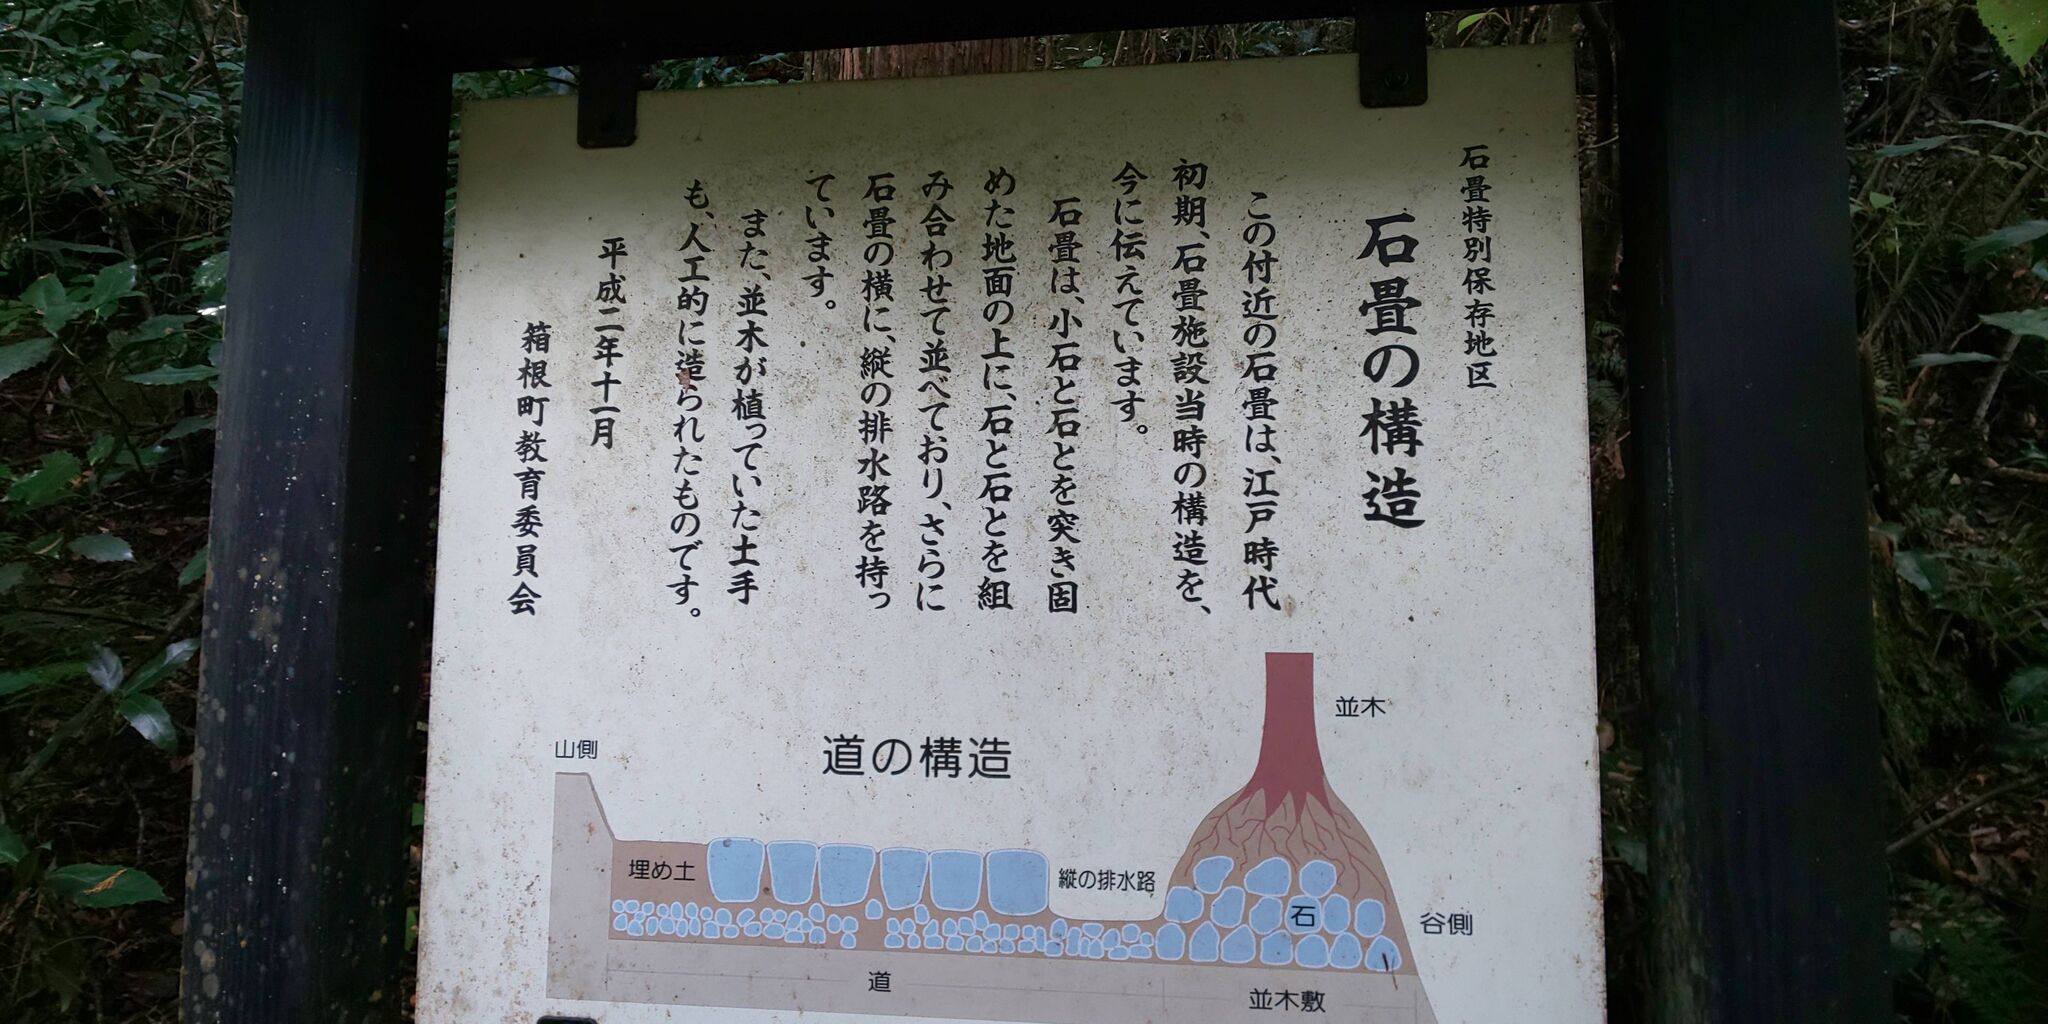 石畳特別保存地区
石畳の構造
この付近の石畳は、江戸時代
初期、石畳施設当時の構造を、
今に伝えています。
石畳は、小石と石とを突き固
めた地面の上に、石と石とを組
み合わせて並べており、さらに
石畳の横に、縦の排水路を持っ
ています。
また、並木が植っていた土手
も、人工的に造られたものです。
平成二年十一月
箱根町教育委員会
道の構造
並木
山側
埋め土
縦の排水路
石
谷側
道
並木敷